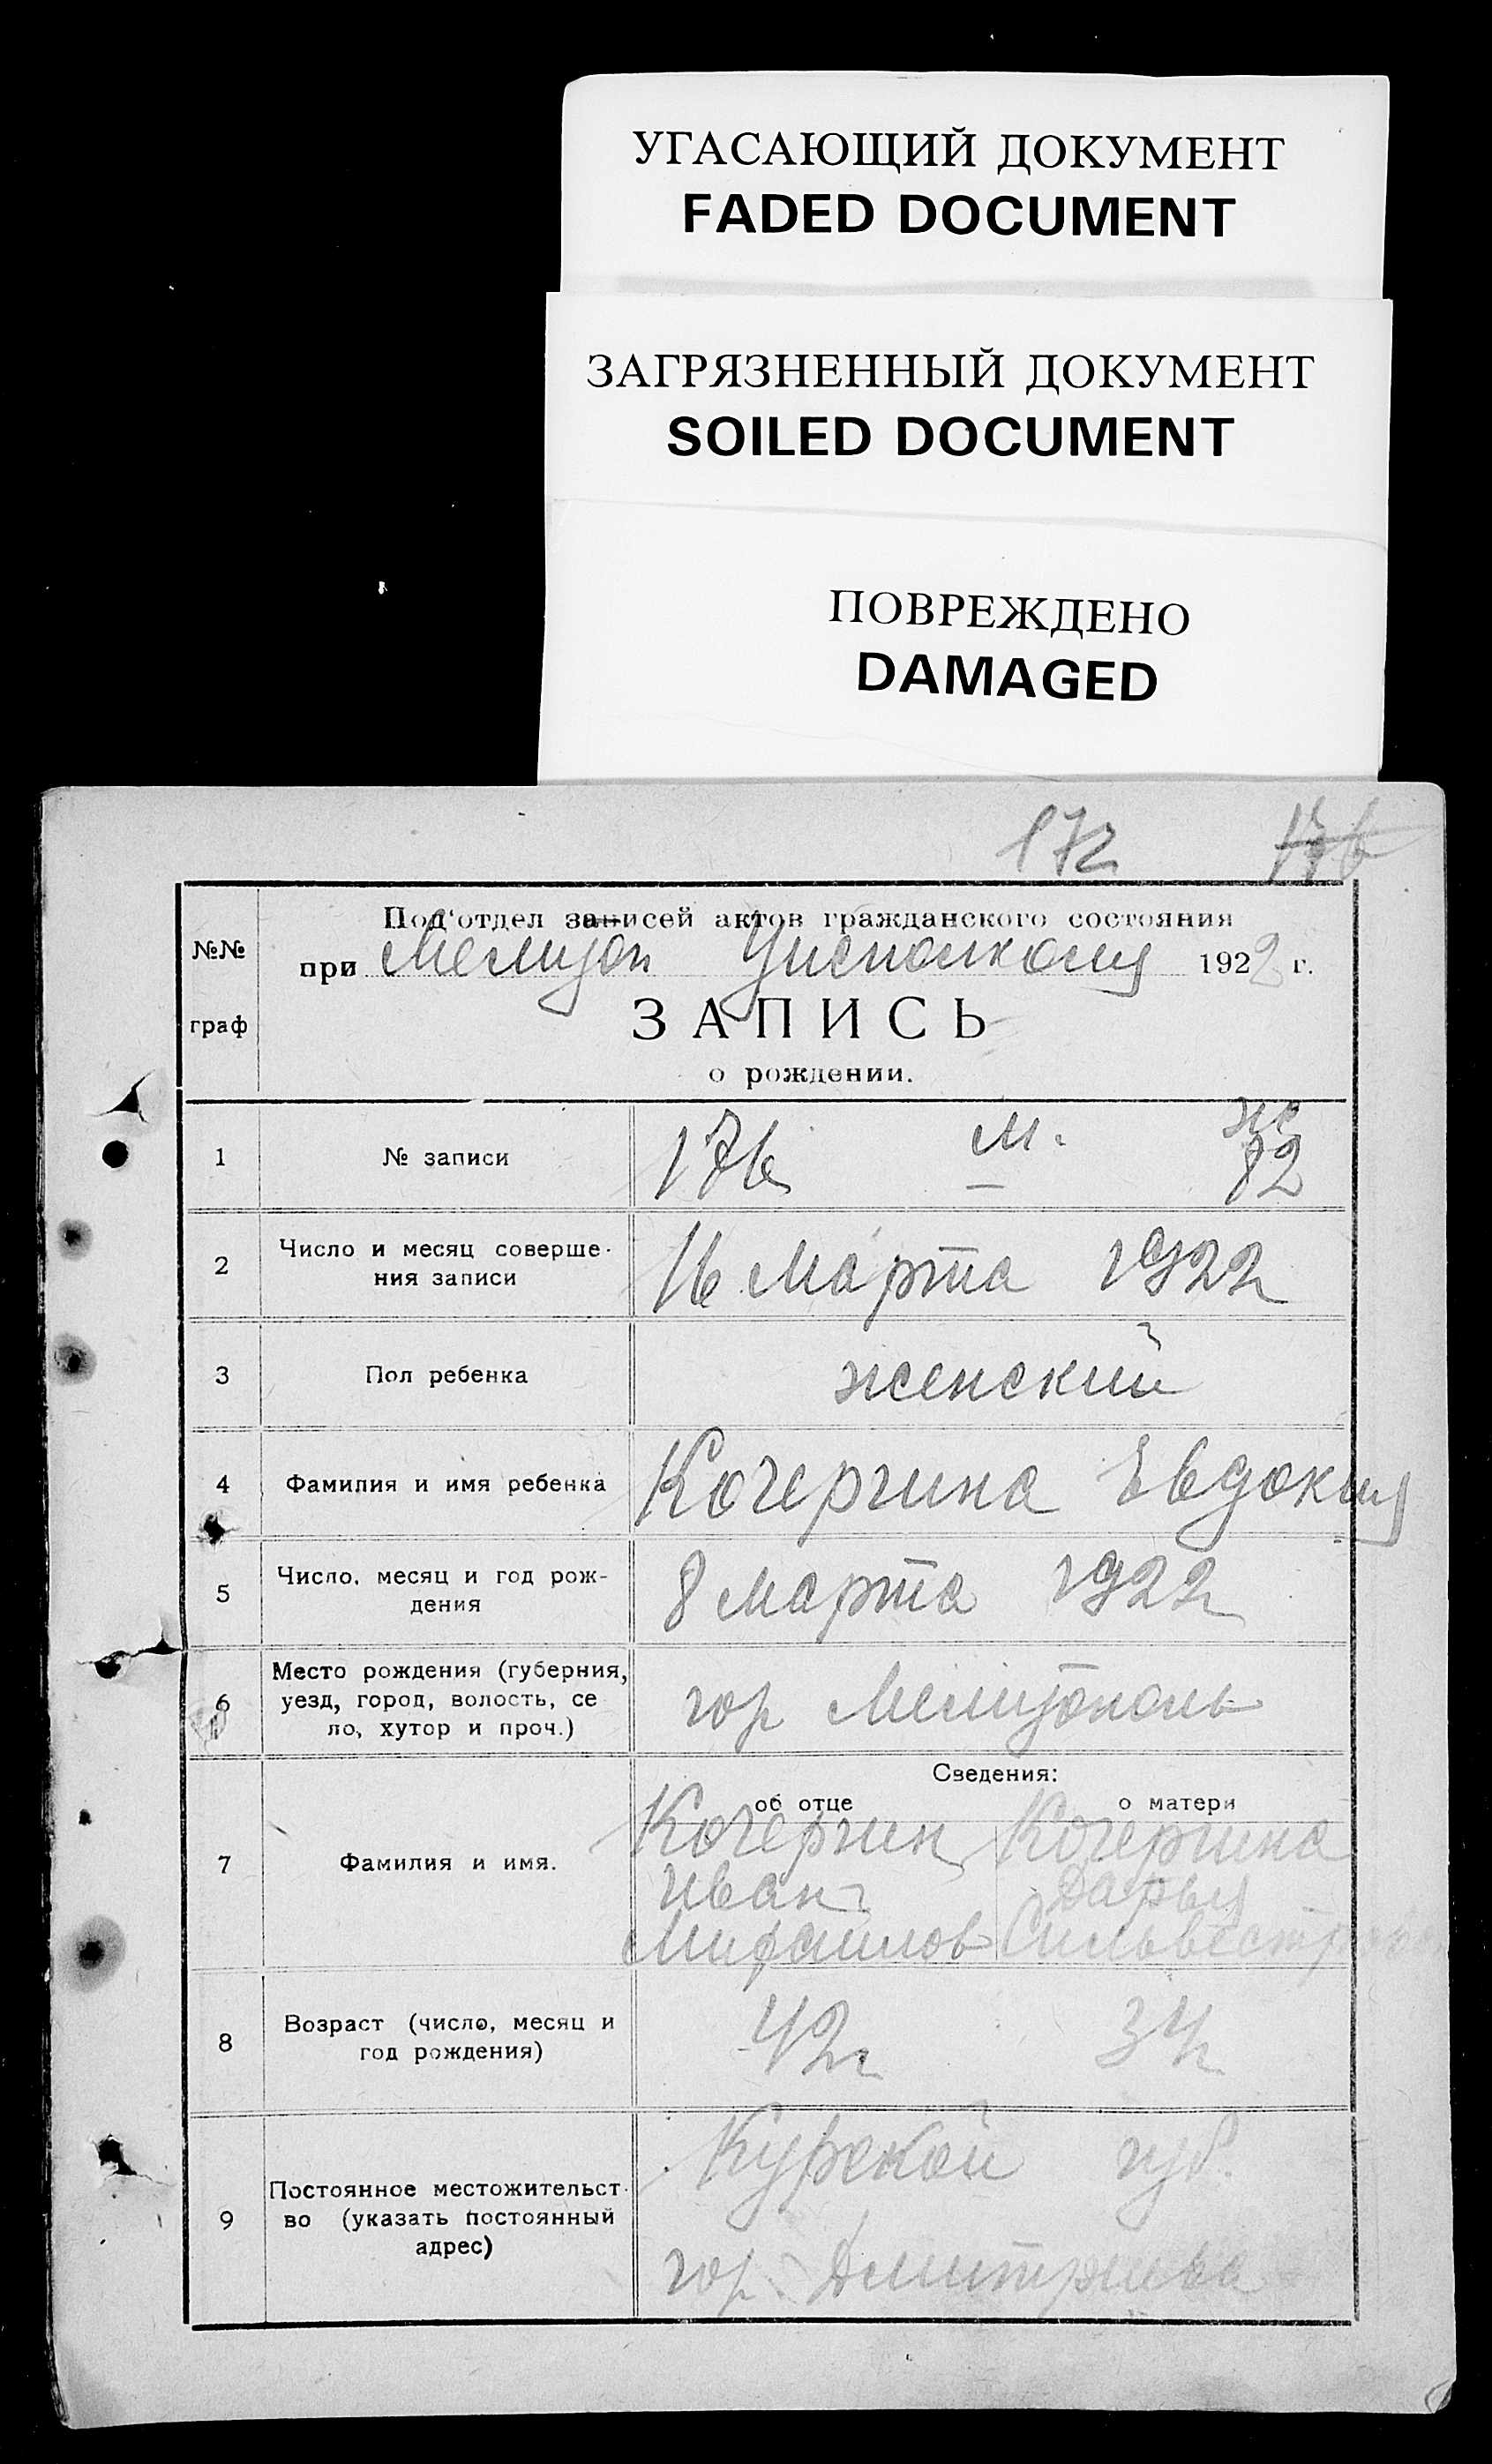 УГАСАЮЩИЙ ДОКУМЕНТ
FADED DOCUMENT
ЗАГРЯЗНЕННЫЙ ДОКУМЕНТ
SOILED DOCUMENT
ПОВРЕЖДЕНО
DAMAGED
172 176
Под'отдел записей актов гражданского состояния
№№ при Мелитоп Уисполкому 1922 г.
граф ЗАПИСЬ
о рождении.
м. ж
1 № записи 176 — 82
2 Число и месяц соверше-
ния записи 16 Марта 1922
3 Пол ребенка женский
4 Фамилия и имя ребенка Кочергина Евдокия
5 Число, месяц и год рож-
дения 8 марта 1922
Место рождения (губерния,
6 уезд, город, волость, се
ло, хутор и проч.) гор Мелитополь
Сведения:
об отце о матери
7 Фамилия и имя. Кочергин Кочергина
Иван Дарья
Михаилов Сильвестров
8 Возраст (число, месяц и
год рождения) 42 г 34 г
Курской губ.
Постоянное местожительст-
9 во (указать постоянный
адрес) гор. Дмитриева